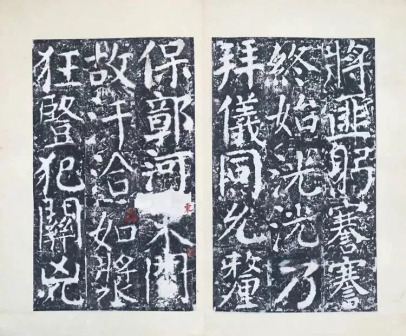 將匪躬謇謇
終始洸洸乃
拜儀同允釐
保鄣河
故汗洽如漿
狂豎犯關兇